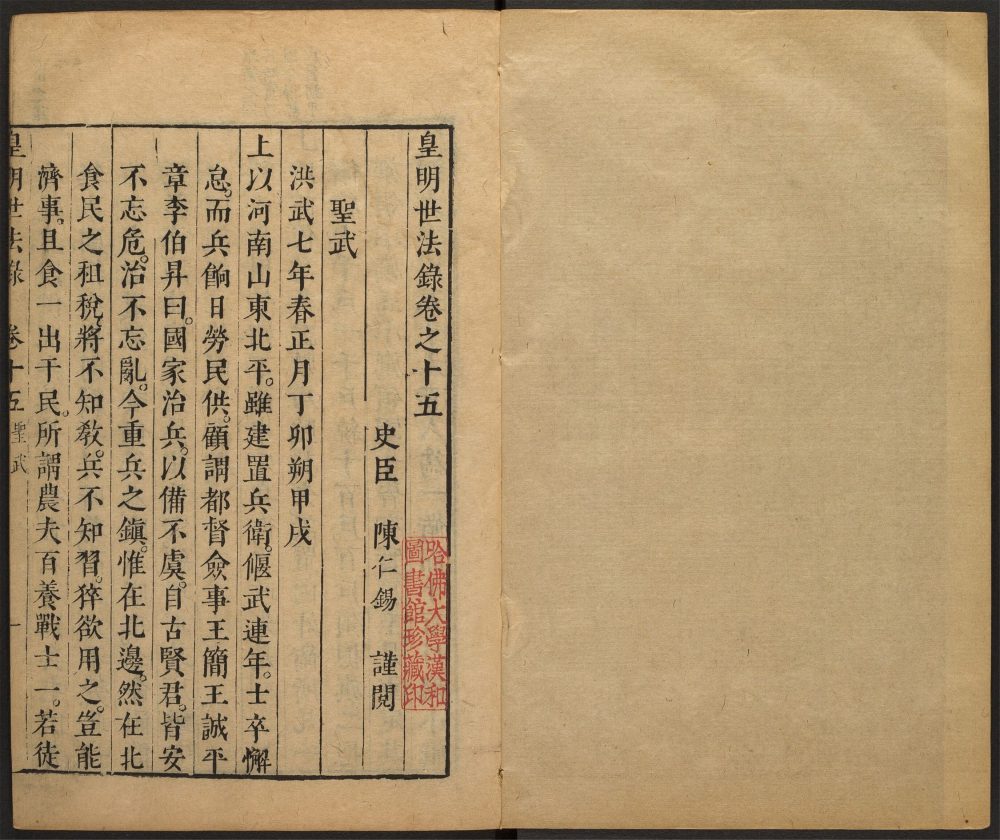 皇明世法錄卷之十五
史臣 陳仁錫 謹閱
聖武
洪武七年春正月丁卯朔甲戌
上以河南山東北平。雖建置兵衛。偃武連年。士卒懈
怠。而兵餉日勞民供。顧謂都督僉事王簡王誠平
章李伯昇曰。國家治兵。以備不虞。自古賢君。皆安
不忘危。治不忘亂。今重兵之鎮。惟在北邊。然在北
食民之租稅。將不知敎。兵不知習。猝欲用之。豈能
濟事。且食一出于民。所謂農夫百養戰士一。若徒
皇明世法錄 卷十五 聖武 一
哈佛大學漢和
圖書館珍藏印